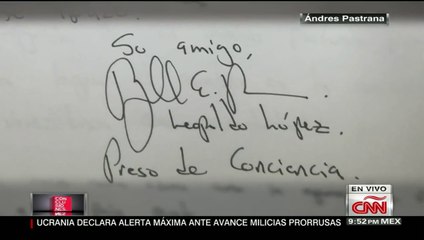 Andres Pastrana
Su amigo,
Leopoldo López.
Preso de Conciencia.
EN VIVO
CNN
9:52PM MEX
UCRANIA DECLARA ALERTA MÁXIMA ANTE AVANCE MILICIAS PRORRUSAS